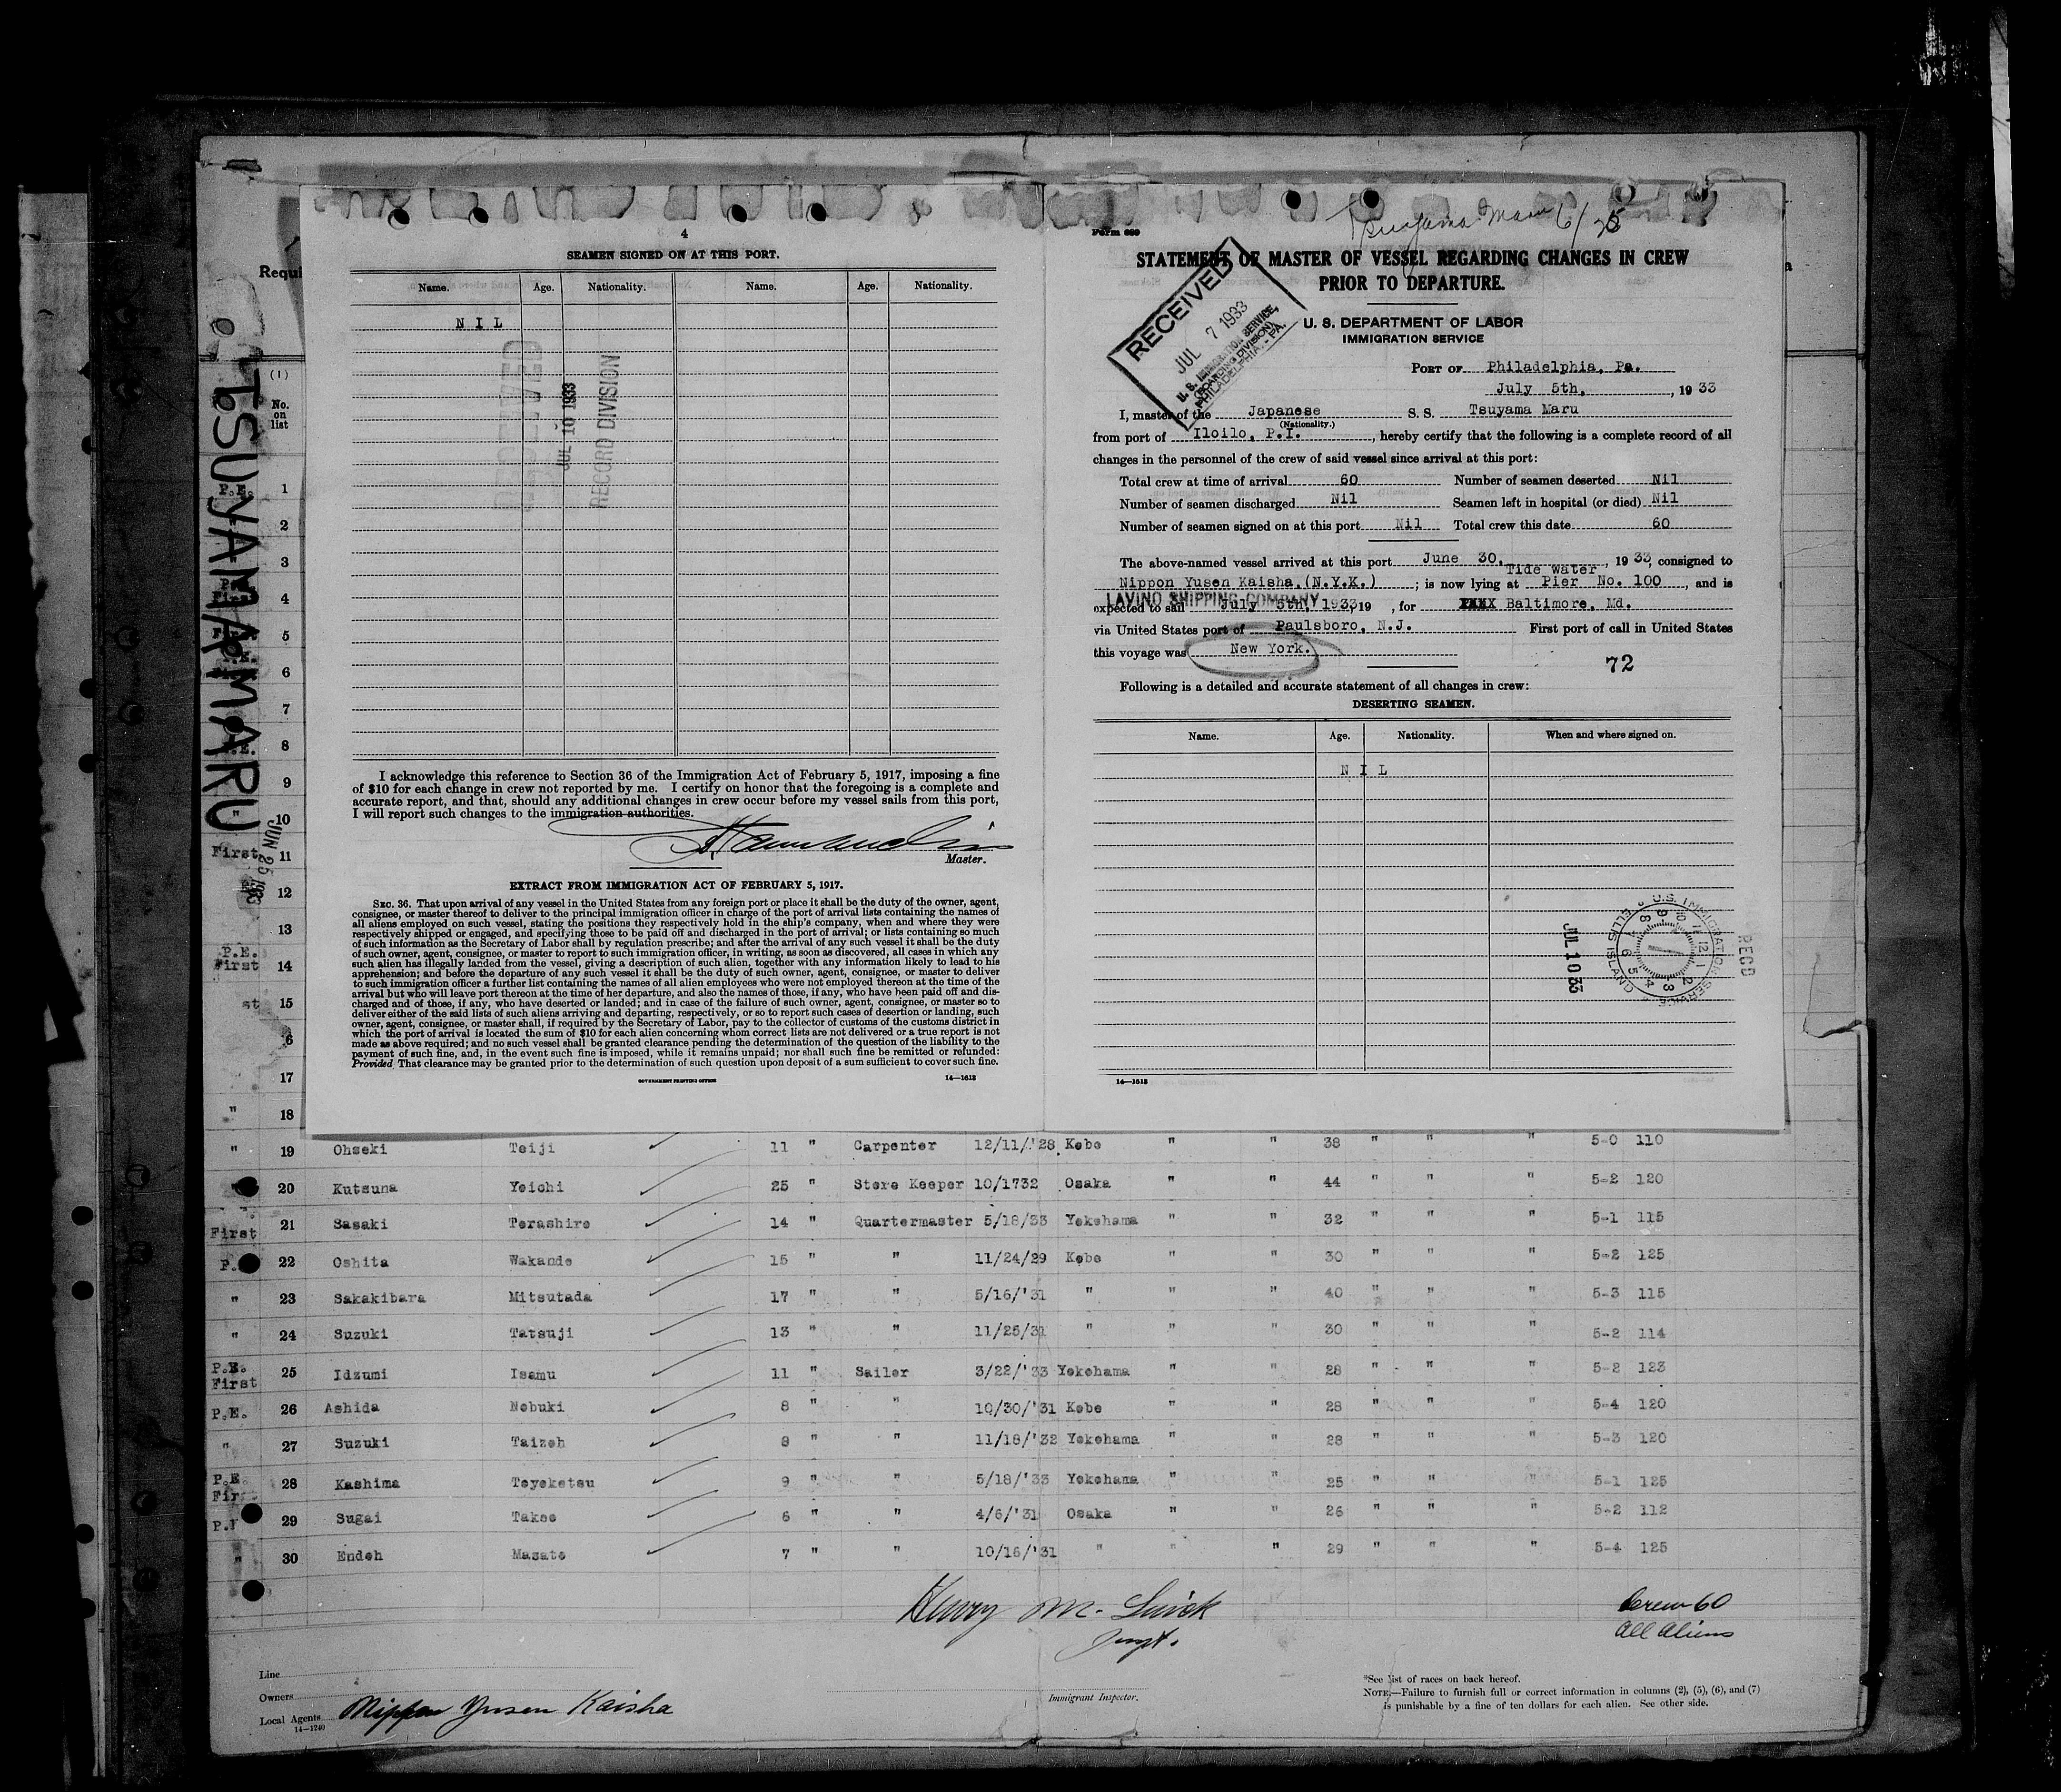 Requi
(1)
No.
on
list
TSUYAMA MARU
JUN 25 1933
4
SEAMEN SIGNED ON AT THIS PORT.
Name. Age. Nationality. Name. Age. Nationality.
N I L
RECEIVED
JUL 10 1933
RECORD DIVISION
I acknowledge this reference to Section 36 of the Immigration Act of February 5, 1917, imposing a fine
of $10 for each change in crew not reported by me. I certify on honor that the foregoing is a complete and
accurate report, and that, should any additional changes in crew occur before my vessel sails from this port,
I will report such changes to the immigration authorities.
Master.
EXTRACT FROM IMMIGRATION ACT OF FEBRUARY 5, 1917.
SEC. 36. That upon arrival of any vessel in the United States from any foreign port or place it shall be the duty of the owner, agent,
consignee, or master thereof to deliver to the principal immigration officer in charge of the port of arrival lists containing the names of
all aliens employed on such vessel, stating the positions they respectively hold in the ship's company, when and where they were
respectively shipped or engaged, and specifying those to be paid off and discharged in the port of arrival; or lists containing so much
of such information as the Secretary of Labor shall by regulation prescribe; and after the arrival of any such vessel it shall be the duty
of such owner, agent, consignee, or master to report to such immigration officer, in writing, as soon as discovered, all cases in which any
such alien has illegally landed from the vessel, giving a description of such alien, together with any information likely to lead to his
apprehension; and before the departure of any such vessel it shall be the duty of such owner, agent, consignee, or master to deliver
to such immigration officer a further list containing the names of all alien employees who were not employed thereon at the time of the
arrival but who will leave port thereon at the time of her departure, and also the names of those, if any, who have been paid off and dis-
charged and of those, if any, who have deserted or landed; and in case of the failure of such owner, agent, consignee, or master so to
deliver either of the said lists of such aliens arriving and departing, respectively, or so to report such cases of desertion or landing, such
owner, agent, consignee, or master shall, if required by the Secretary of Labor, pay to the collector of customs of the customs district in
which the port of arrival is located the sum of $10 for each alien concerning whom correct lists are not delivered or a true report is not
made as above required; and no such vessel shall be granted clearance pending the determination of the question of the liability to the
payment of such fine, and, in the event such fine is imposed, while it remains unpaid; nor shall such fine be remitted or refunded:
Provided That clearance may be granted prior to the determination of such question upon deposit of a sum sufficient to cover such fine.
GOVERNMENT PRINTING OFFICE 14—1613
Tsuyama Maru 6/25
Form 689
STATEMENT OF MASTER OF VESSEL REGARDING CHANGES IN CREW
PRIOR TO DEPARTURE.
RECEIVED
JUL 7 1933
U. S. IMMIGRATION SERVICE,
(BOARDING DIVISION)
PHILADELPHIA, - PA.
U. S. DEPARTMENT OF LABOR
IMMIGRATION SERVICE
PORT OF Philadelphia, Pa.
July 5th, , 19 33
I, master of the Japanese S. S. Tsuyama Maru
(Nationality.)
from port of Iloilo, P.I. , hereby certify that the following is a complete record of all
changes in the personnel of the crew of said vessel since arrival at this port:
Total crew at time of arrival 60 Number of seamen deserted Nil
Number of seamen discharged Nil Seamen left in hospital (or died) Nil
Number of seamen signed on at this port Nil Total crew this date 60
The above-named vessel arrived at this port June 30, , 19 33, consigned to
Tide water
Nippon Yusen Kaisha.(N.Y.K.) ; is now lying at Pier No. 100 , and is
LAVINO SHIPPING COMPANY
expected to sail July 5th, 1933, 19 , for XXXX Baltimore, Md.
via United States port of Paulsboro, N.J. First port of call in United States
this voyage was New York.
72
Following is a detailed and accurate statement of all changes in crew:
DESERTING SEAMEN.
Name. Age. Nationality. When and where signed on.
N I L
U.S. IMMIGRATION SERVICE
ELLIS ISLAND
JUL 10 33
RECD
14—1613
P.E. 1
2
3
4
5
6
7
8
9
10
First 11
12
13
P.E.
First 14
st 15
6
17
" 18
" 19 Ohzeki Teiji 11 " Carpenter 12/11/'28 Kobe " " 38 " " " 5-0 110
20 Kutsuna Yeichi 25 " Store Keeper 10/1732 Osaka " " 44 " " " 5-2 120
First 21 Sasaki Terashiro 14 " Quartermaster 5/18/33 Yokohama " " 32 " " " 5-1 115
P. 22 Oshita Wakando 15 " " 11/24/29 Kobe " " 30 " " " 5-2 125
" 23 Sakakibara Mitsutada 17 " " 5/16/'31 " " " 40 " " " 5-3 115
" 24 Suzuki Tatsuji 13 " " 11/25/31 " " " 30 " " " 5-2 114
P.E.
First 25 Idzumi Isamu 11 " Sailor 3/22/'33 Yokohama " " 28 " " " 5-2 123
P.E. 26 Ashida Nobuki 8 " " 10/30/'31 Kobe " " 28 " " " 5-4 120
" 27 Suzuki Taizoh 8 " " 11/18/'32 Yokohama " " 28 " " " 5-3 120
P.E
Firs 28 Kashima Toyokatsu 9 " " 5/18/'33 Yokohama " " 25 " " " 5-1 125
29 Sugai Takeo 6 " " 4/6/'31 Osaka " " 26 " " " 5-2 112
" 30 Endoh Masato 7 " " 10/16/'31 " " " 29 " " " 5-4 125
Crew 60
All Aliens
Line
Owners
Local Agents Nippon Yusen Kaisha
14—1240
Immigrant Inspector.
*See list of races on back hereof.
NOTE.—Failure to furnish full or correct information in columns (2), (5), (6), and (7)
is punishable by a fine of ten dollars for each alien. See other side.